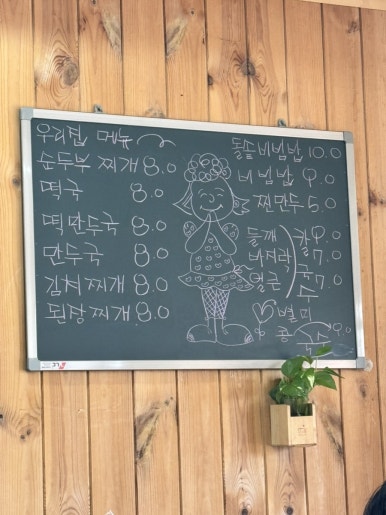 우리집 메뉴
순두부찌개 8.0
떡국 8.0
떡만두국 8.0
만두국 8.0
김치찌개 8.0
된장찌개 8.0
돌솥비빔밥 10.0
비빔밥 9.0
찐만두 5.0
들깨 칼 9.0
바지락 7.0
얼큰 국수 7.0
별미
콩 국수 9.0